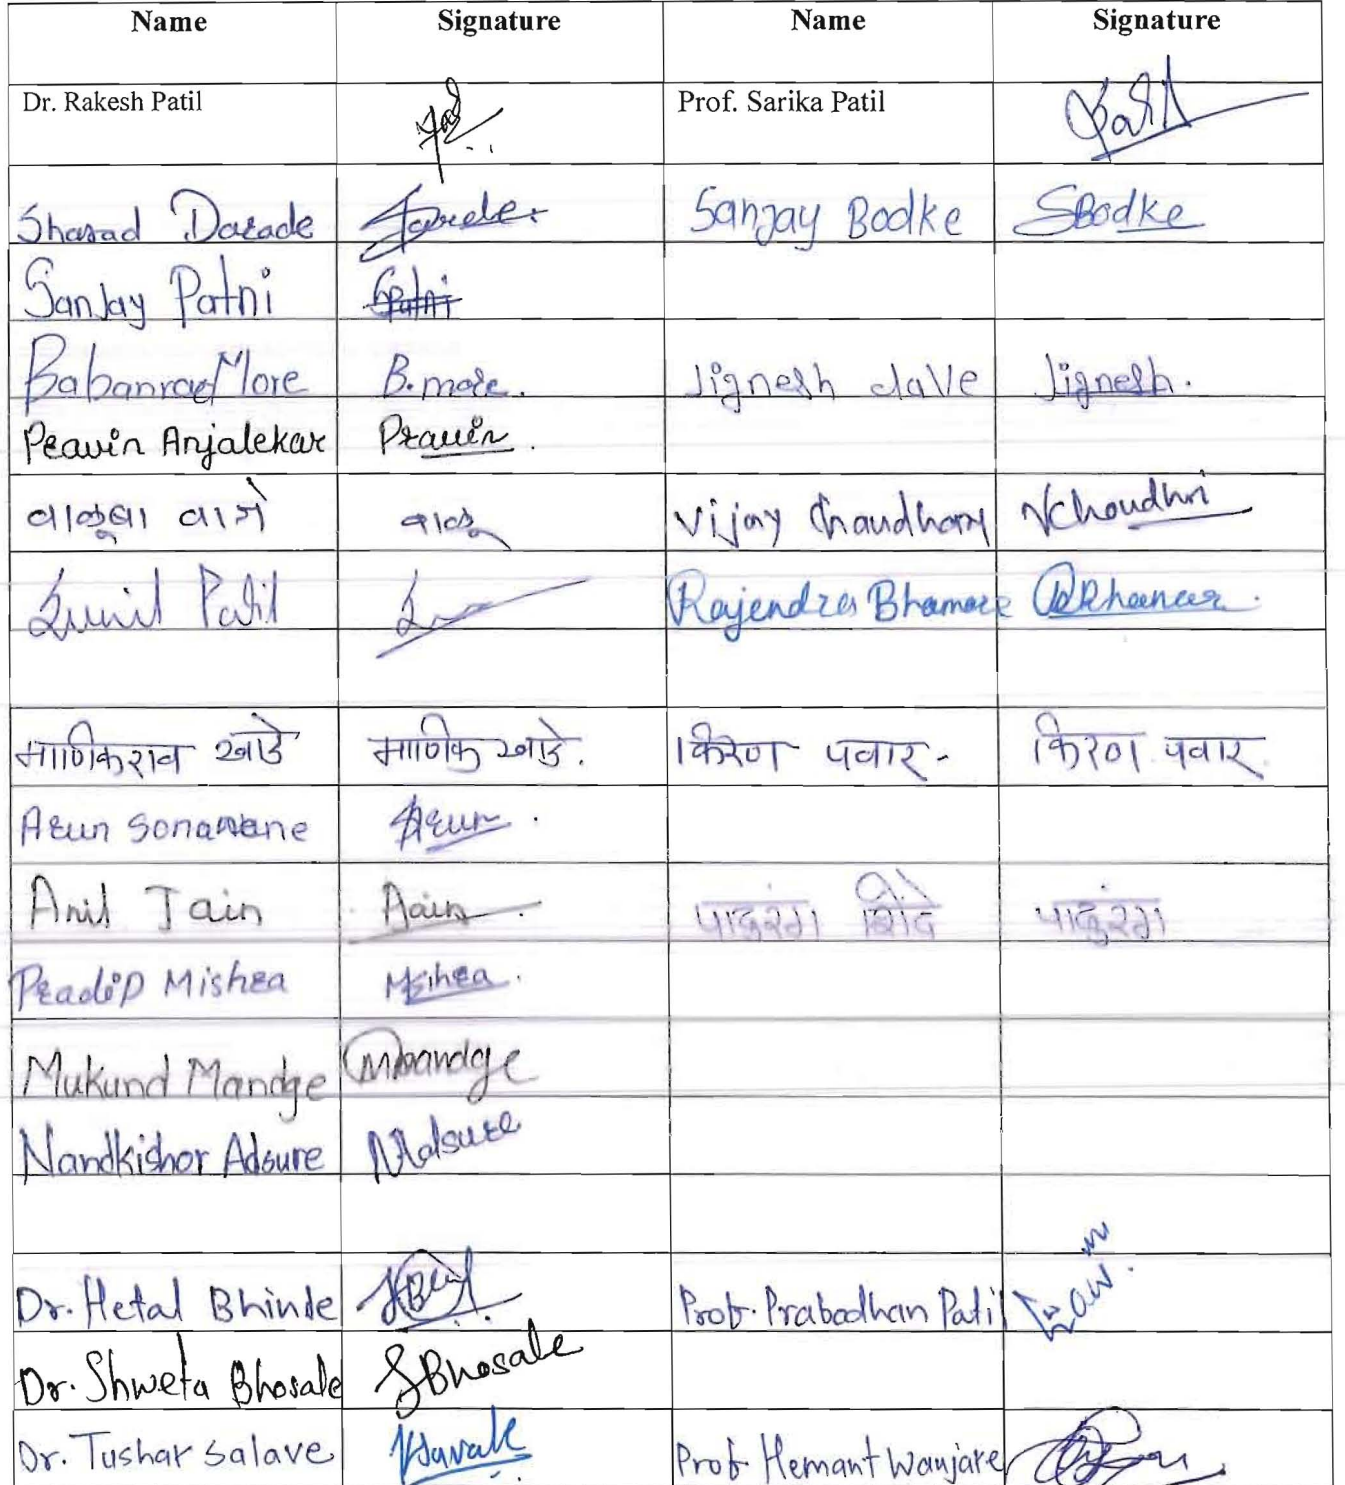 Name Signature Name Signature
Dr. Rakesh Patil Prof. Sarika Patil Patil
Sharad Darade Sanjay Bodke SBodke
Sanjay Patni SPatni
Babanrao More B. more. Jignesh daVe Jignesh.
Pravin Anjalekar Pravin.
वाळूबा वाजे वाळू Vijay Chaudhary VChoudhri
Sunil Patil Rajendra Bhamare
माणिकराव खाडे माणिक खाडे. किरण पवार- किरण पवार.
Arun Sonawane Arun.
Anil Jain AJain. पांदुरंग शिंदे पांदुरंग
Pradip Mishra Mishra.
Mukund Mandge Mandge
Nandkishor Adsure NAdsure
Dr. Hetal Bhinde Prof. Prabodhan Patil
Dr. Shweta Bhosale SBhosale
Dr. Tushar Salave Prof Hemant Wanjare